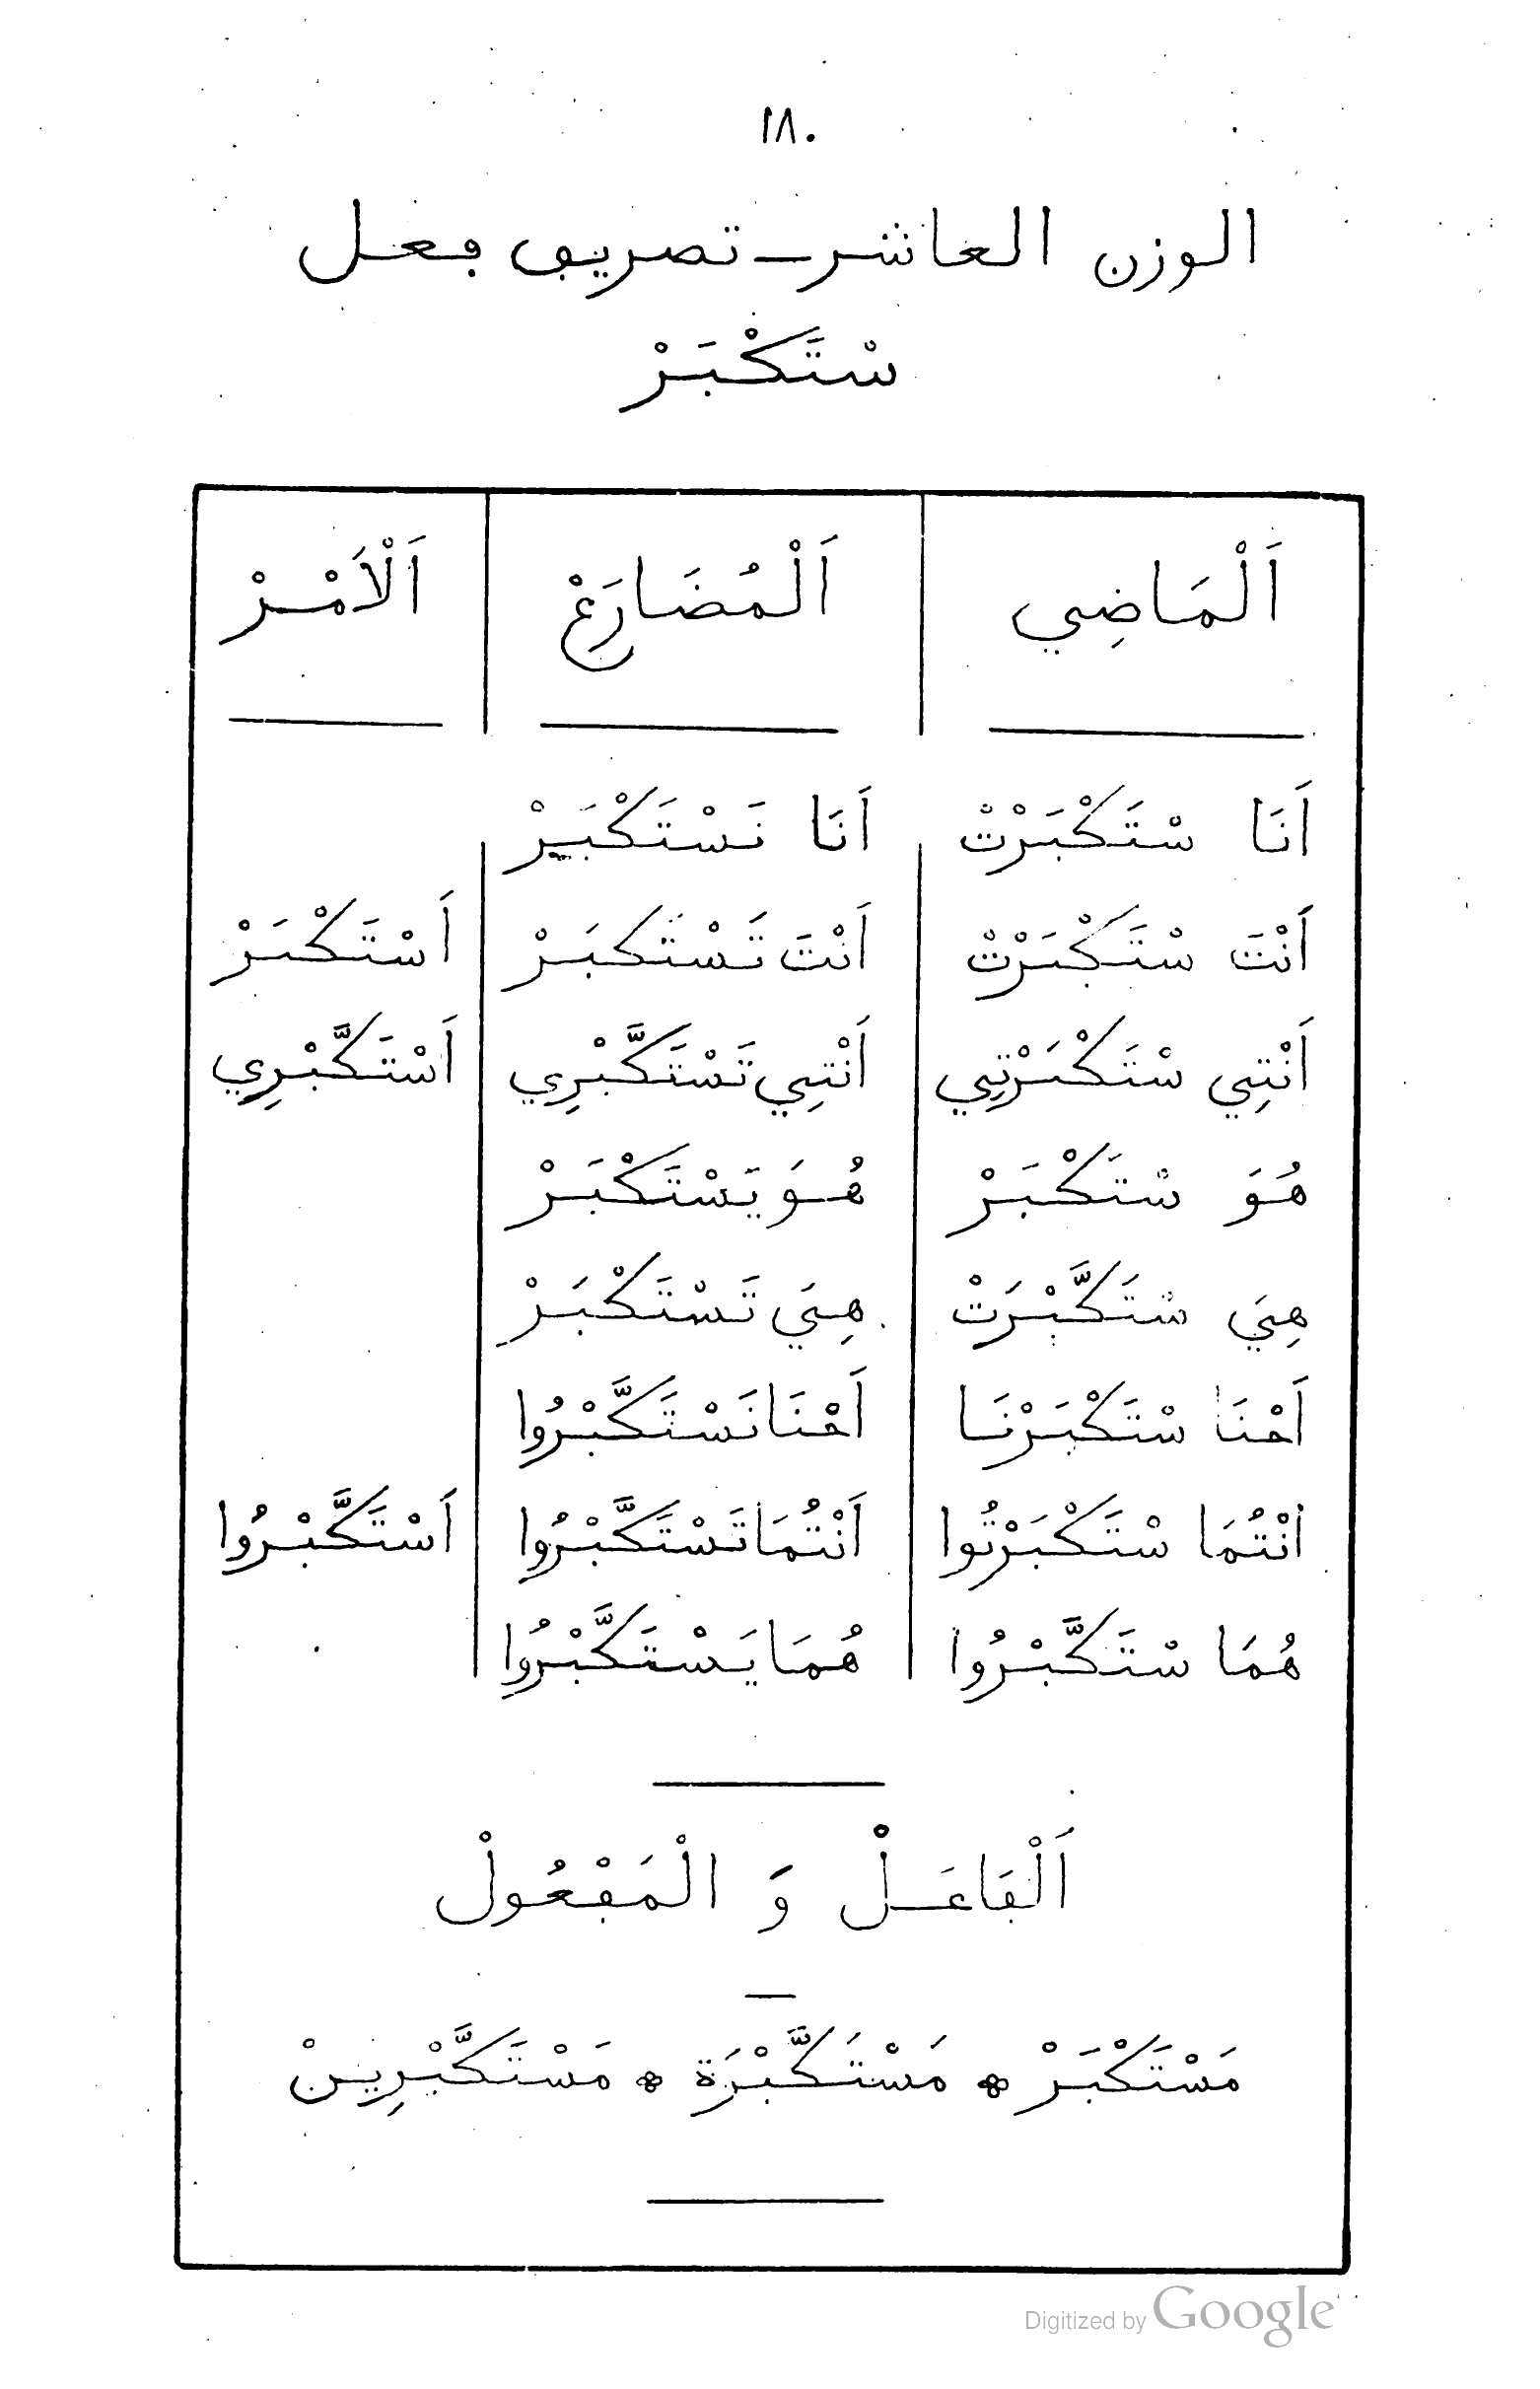 ١٨٠
الوزن العاشر ـ تصريڢ ڢعل
سْتَكْبَرْ
اَلْمَاضِي اَلْمُضَارَعْ اَلْاَمْرْ
اَنَا سْتَكْبَرْتْ اَنَا نَسْتَكْبَرْ
اَنْتَ سْتَكْبَرْتْ اَنْتَ تَسْتَكبَرْ اَسْتَكْبَرْ
اَنْتِي سْتَكْبَرْتِي اَنْتِي تَسْتَكَّبْرِي اَسْتَكَّبْرِي
هُوَ سْتَكْبَرْ هُوَ يَسْتَكْبَرْ
هِيَ سْتَكَّبْرَتْ هِيَ تَسْتَكْبَرْ
اَحْنَا سْتَكْبَرْنَا اَحْنَا نَسْتَكَّبْرُوا
انْتُمَا سْتَكْبَرْتُوا اَنْتُمَا تَسْتَكَّبْرُوا اَسْتَكَّبْرُوا
هُمَا سْتَكَّبْرُوا هُمَا يَسْتَكَّبْرُوا
اَلْڢَاعَلْ وَ الْمَڢْعُولْ
مَسْتَكْبَرْ * مَسْتَكَّبْرَة * مَسْتَكَّبْرِينْ
Digitized by Google